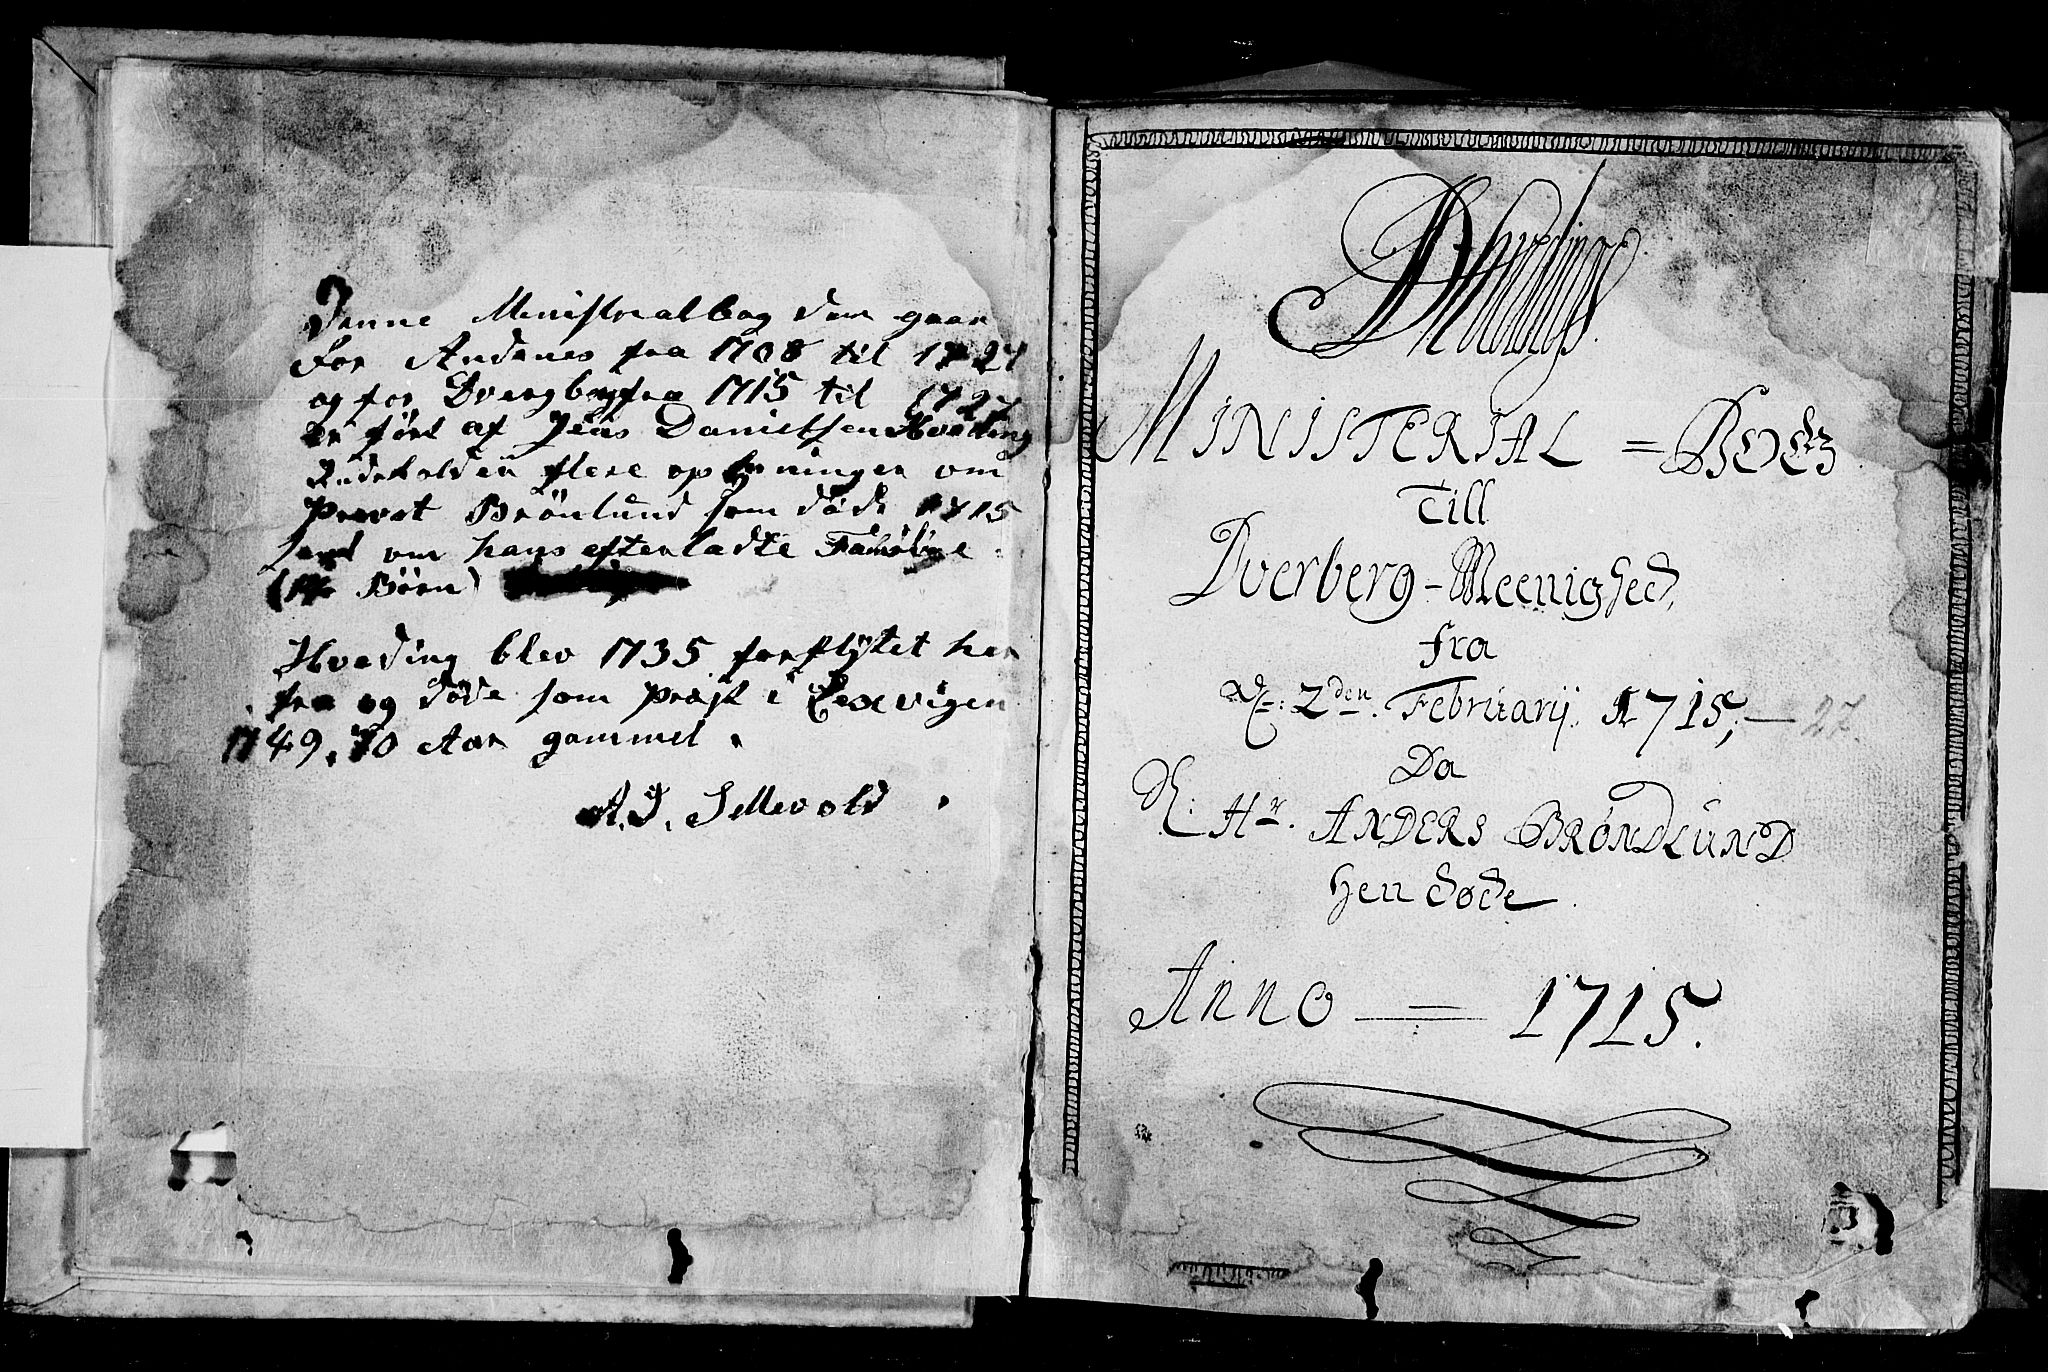 Denne Ministrealbog som gaar
For Andenes fra 1708 til 1727
og for Dvergberg fra 1715 til 1727
er ført af Jens Danielsen Hveding
Indeholder flere oplysninger om
Provst Brönlund som døde 1715
samt om hans efterladte Familie.
Børn)
Hveding blev 1735 forflytet her
fra og døde som Præst i Lexvigen
1749. 70 Aar gammel.
A. J. Sellevold
Hvedings
MINISTERIAL = BOEG
Till
Dverberg - Meenighed,
fra
D: 2den. Februarij. 1715, — 27.
Da
Hr. ANDERS BRØNDLUND
Hen døde.
Anno = 1715.